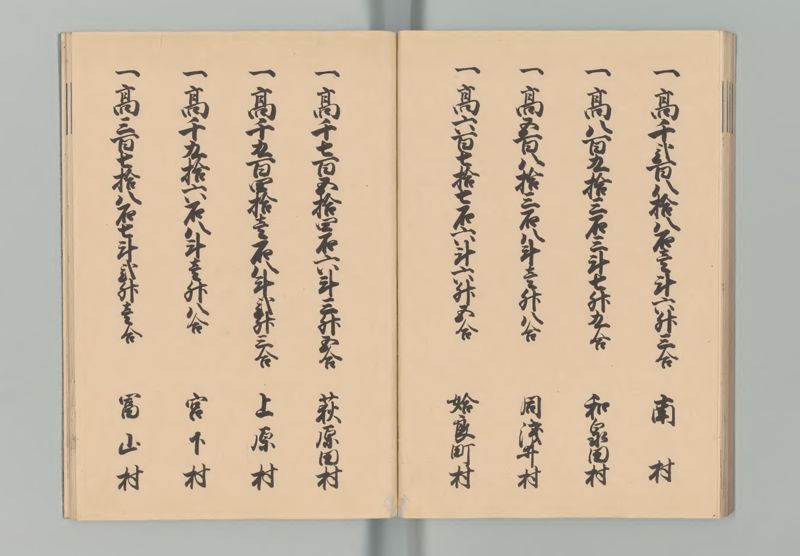 一高千弐百八拾八石壱斗六升三合 南村
一高八百九拾三石三斗七升九合 和泉田村
一高五百八拾三石八斗壱升八合 周浅井村
一高六百七拾七石六斗六升五合 姶良町村
一高千七百五拾四石六斗三升五合 萩原田村
一高千五百四拾壱石八斗弐升三合 上原村
一高千九拾六石八斗壱升八合 宮下村
一高三百七拾八石七斗弐升壱合 冨山村